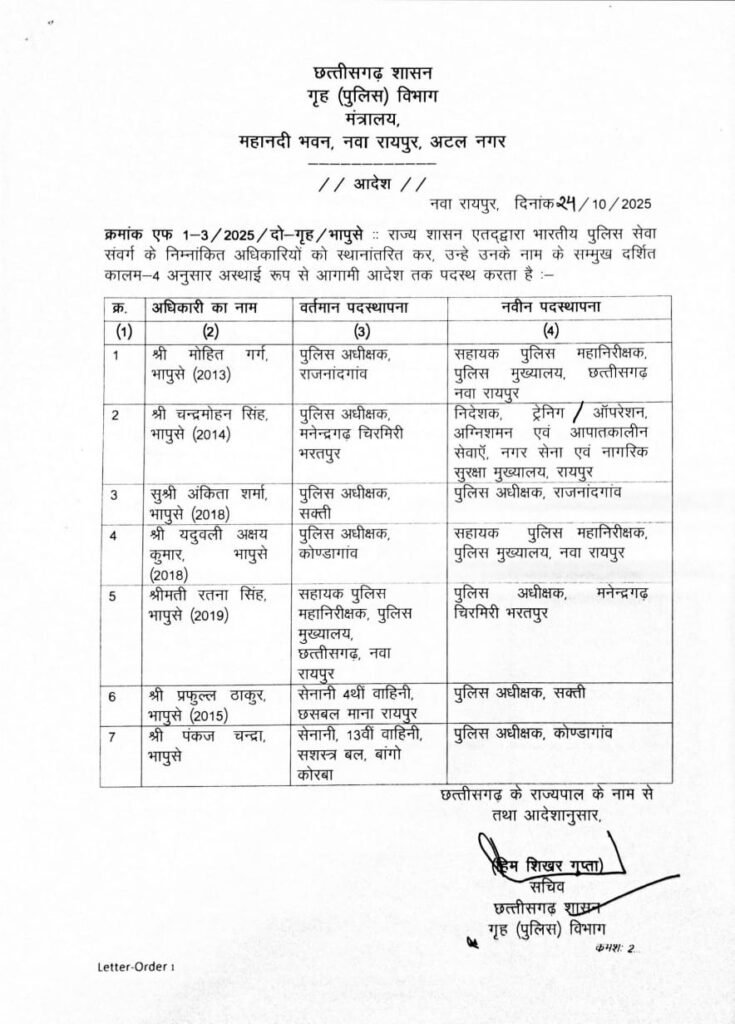 छत्तीसगढ़ शासन
गृह (पुलिस) विभाग
मंत्रालय,
महानदी भवन, नवा रायपुर, अटल नगर
------------
// आदेश //
नवा रायपुर, दिनांक 24/10/2025
क्रमांक एफ 1-3/2025/दो-गृह/भापुसे :: राज्य शासन एतद्द्वारा भारतीय पुलिस सेवा
संवर्ग के निम्नांकित अधिकारियों को स्थानांतरित कर, उन्हे उनके नाम के सम्मुख दर्शित
कालम-4 अनुसार अस्थाई रूप से आगामी आदेश तक पदस्थ करता है :-
क्र. अधिकारी का नाम वर्तमान पदस्थापना नवीन पदस्थापना
(1) (2) (3) (4)
1 श्री मोहित गर्ग, पुलिस अधीक्षक, सहायक पुलिस महानिरीक्षक,
भापुसे (2013) राजनांदगांव पुलिस मुख्यालय, छत्तीसगढ़
नवा रायपुर
2 श्री चन्द्रमोहन सिंह, पुलिस अधीक्षक, निदेशक, ट्रेनिग / ऑपरेशन,
भापुसे (2014) मनेन्द्रगढ़ चिरमिरी अग्निशमन एवं आपातकालीन
भरतपुर सेवाऍ, नगर सेना एवं नागरिक
सुरक्षा मुख्यालय, रायपुर
3 सुश्री अंकिता शर्मा, पुलिस अधीक्षक, पुलिस अधीक्षक, राजनांदगांव
भापुसे (2018) सक्ती
4 श्री यदुवली अक्षय पुलिस अधीक्षक, सहायक पुलिस महानिरीक्षक,
कुमार, भापुसे कोण्डागांव पुलिस मुख्यालय, नवा रायपुर
(2018)
5 श्रीमती रतना सिंह, सहायक पुलिस पुलिस अधीक्षक, मनेन्द्रगढ़
भापुसे (2019) महानिरीक्षक, पुलिस चिरमिरी भरतपुर
मुख्यालय,
छत्तीसगढ़, नवा
रायपुर
6 श्री प्रफुल्ल ठाकुर, सेनानी 4थीं वाहिनी, पुलिस अधीक्षक, सक्ती
भापुसे (2015) छसबल माना रायपुर
7 श्री पंकज चन्द्रा, सेनानी, 13वीं वाहिनी, पुलिस अधीक्षक, कोण्डागांव
भापुसे सशस्त्र बल, बांगो
कोरबा
छत्तीसगढ़ के राज्यपाल के नाम से
तथा आदेशानुसार,
(हिम शिखर गुप्ता)
सचिव
छत्तीसगढ़ शासन
गृह (पुलिस) विभाग
क्रमशः 2
Letter-Order 1